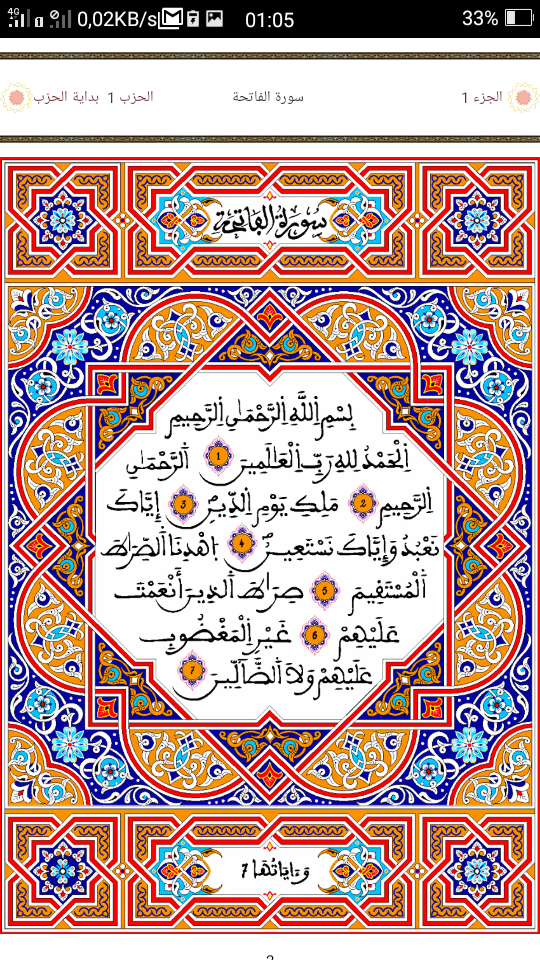 4G 0,02KB/s 01:05 33%
الجزء 1 سورة الفاتحة الحزب 1 بداية الحزب
سُورَةُ الْفَاتِحَةِ
بِسْمِ اِ۬للَّهِ اِ۬لرَّحْمَٰنِ اِ۬لرَّحِيمِ
اِ۬لْحَمْدُ لِلهِ رَبِّ اِ۬لْعَٰلَمِينَ 1 اَ۬لرَّحْمَٰنِ
اِ۬لرَّحِيمِ 2 مَلِكِ يَوْمِ اِ۬لدِّينِ 3 إِيَّاكَ
نَعْبُدُ وَإِيَّاكَ نَسْتَعِينُ 4 اُ۪هْدِنَا اَ۬لصِّرَٰطَ
اَ۬لْمُسْتَقِيمَ 5 صِرَٰطَ اَ۬لذِينَ أَنْعَمْتَ
عَلَيْهِمْ 6 غَيْرِ اِ۬لْمَغْضُوبِ
عَلَيْهِمْ وَلَا اَ۬لضَّآلِّينَ 7
وَءَايَاتُهَا 7